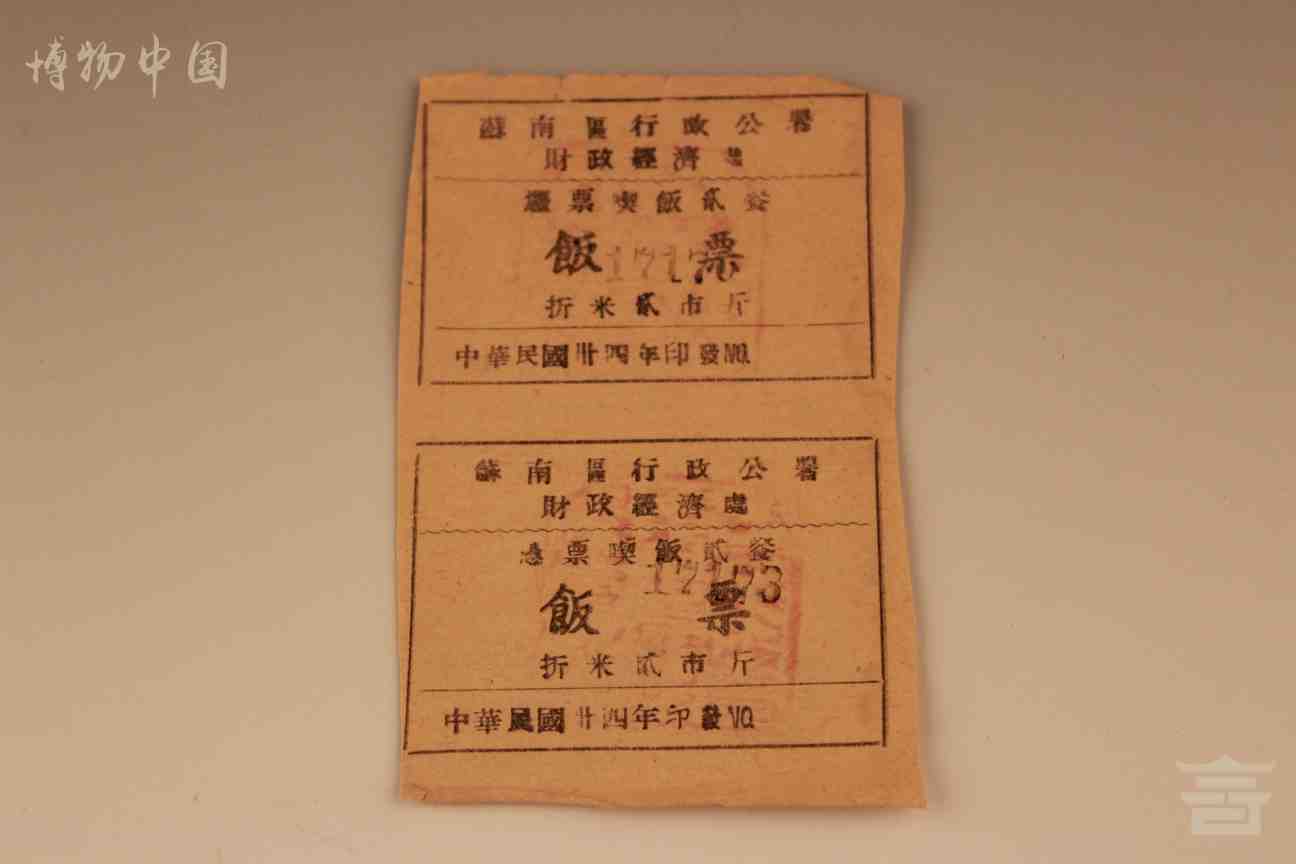 博物中国
蘇南區行政公署
財政經濟處
憑票喫飯貳餐
飯票
折米貳市斤
中華民國卅四年印發NO.
蘇南區行政公署
財政經濟處
憑票喫飯貳餐
17173
飯票
折米貳市斤
中華民國卅四年印發NO.